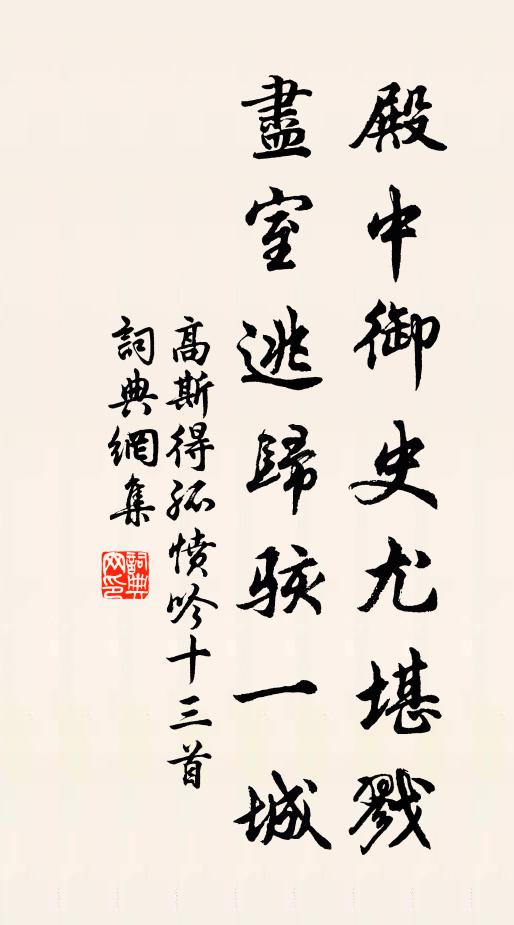 殿中御史尤堪戮
盡室逃歸駭一城
高斯得孤憤吟十三首
詞典網集
詞典网印